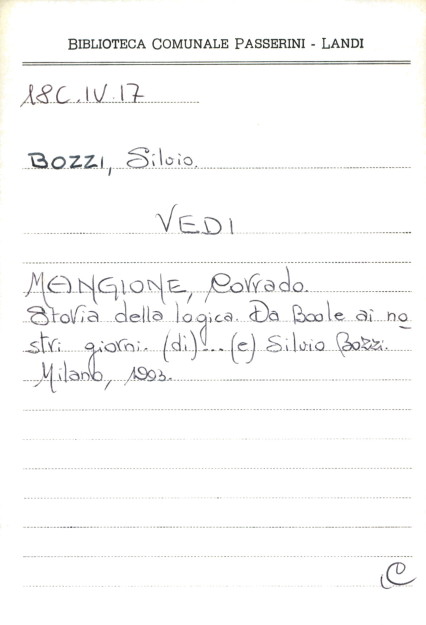 BIBLIOTECA COMUNALE PASSERINI - LANDI
18C.IV.17
BOZZI, Silvio.
VEDI
MANGIONE, Corrado.
Storia della logica. Da Boole ai no-
stri giorni. (di)... (e) Silvio Bozzi.
Milano, 1993.
C